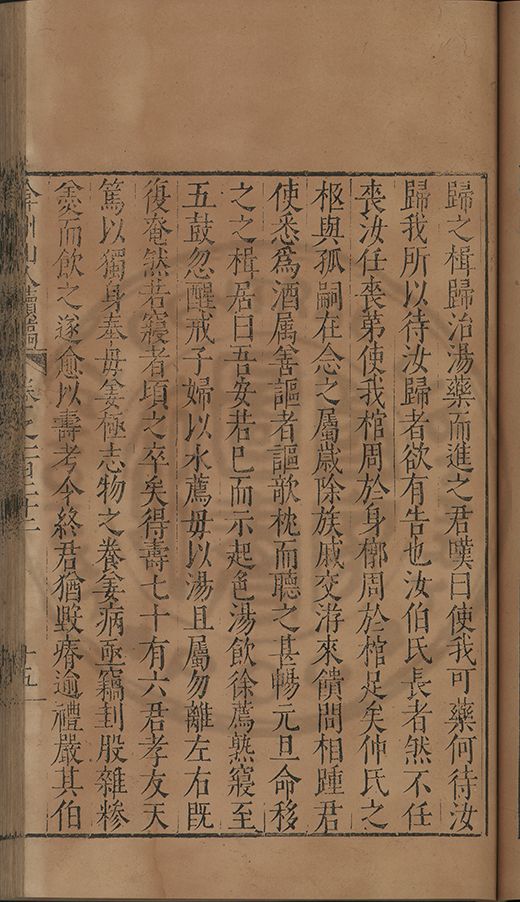 歸之楫歸治湯藥而進之君嘆曰使我可藥何待汝
歸我所以待汝歸者欲有告也汝伯氏長者然不任
喪汝任喪第使我棺周於身槨周於棺足矣仲氏之
柩與孤嗣在念之屬歲除族戚交游來饋問相踵君
使悉爲酒屬善謳者謳歌枕而聽之甚暢元旦命移
之之楫居曰吾安若已而示起色湯飲徐薦熟寢至
五鼓忽醒戒子婦以水薦毋以湯且屬勿離左右既
復奄然若寢者頃之卒矣得壽七十有六君孝友天
篤以獨身奉毋妾極志物之養妾病亟竊刲股雜糝
羹而飲之遂愈以壽考令終君猶毀瘠逾禮嚴其伯
弇州山人續稿 卷之一百二十二 十五